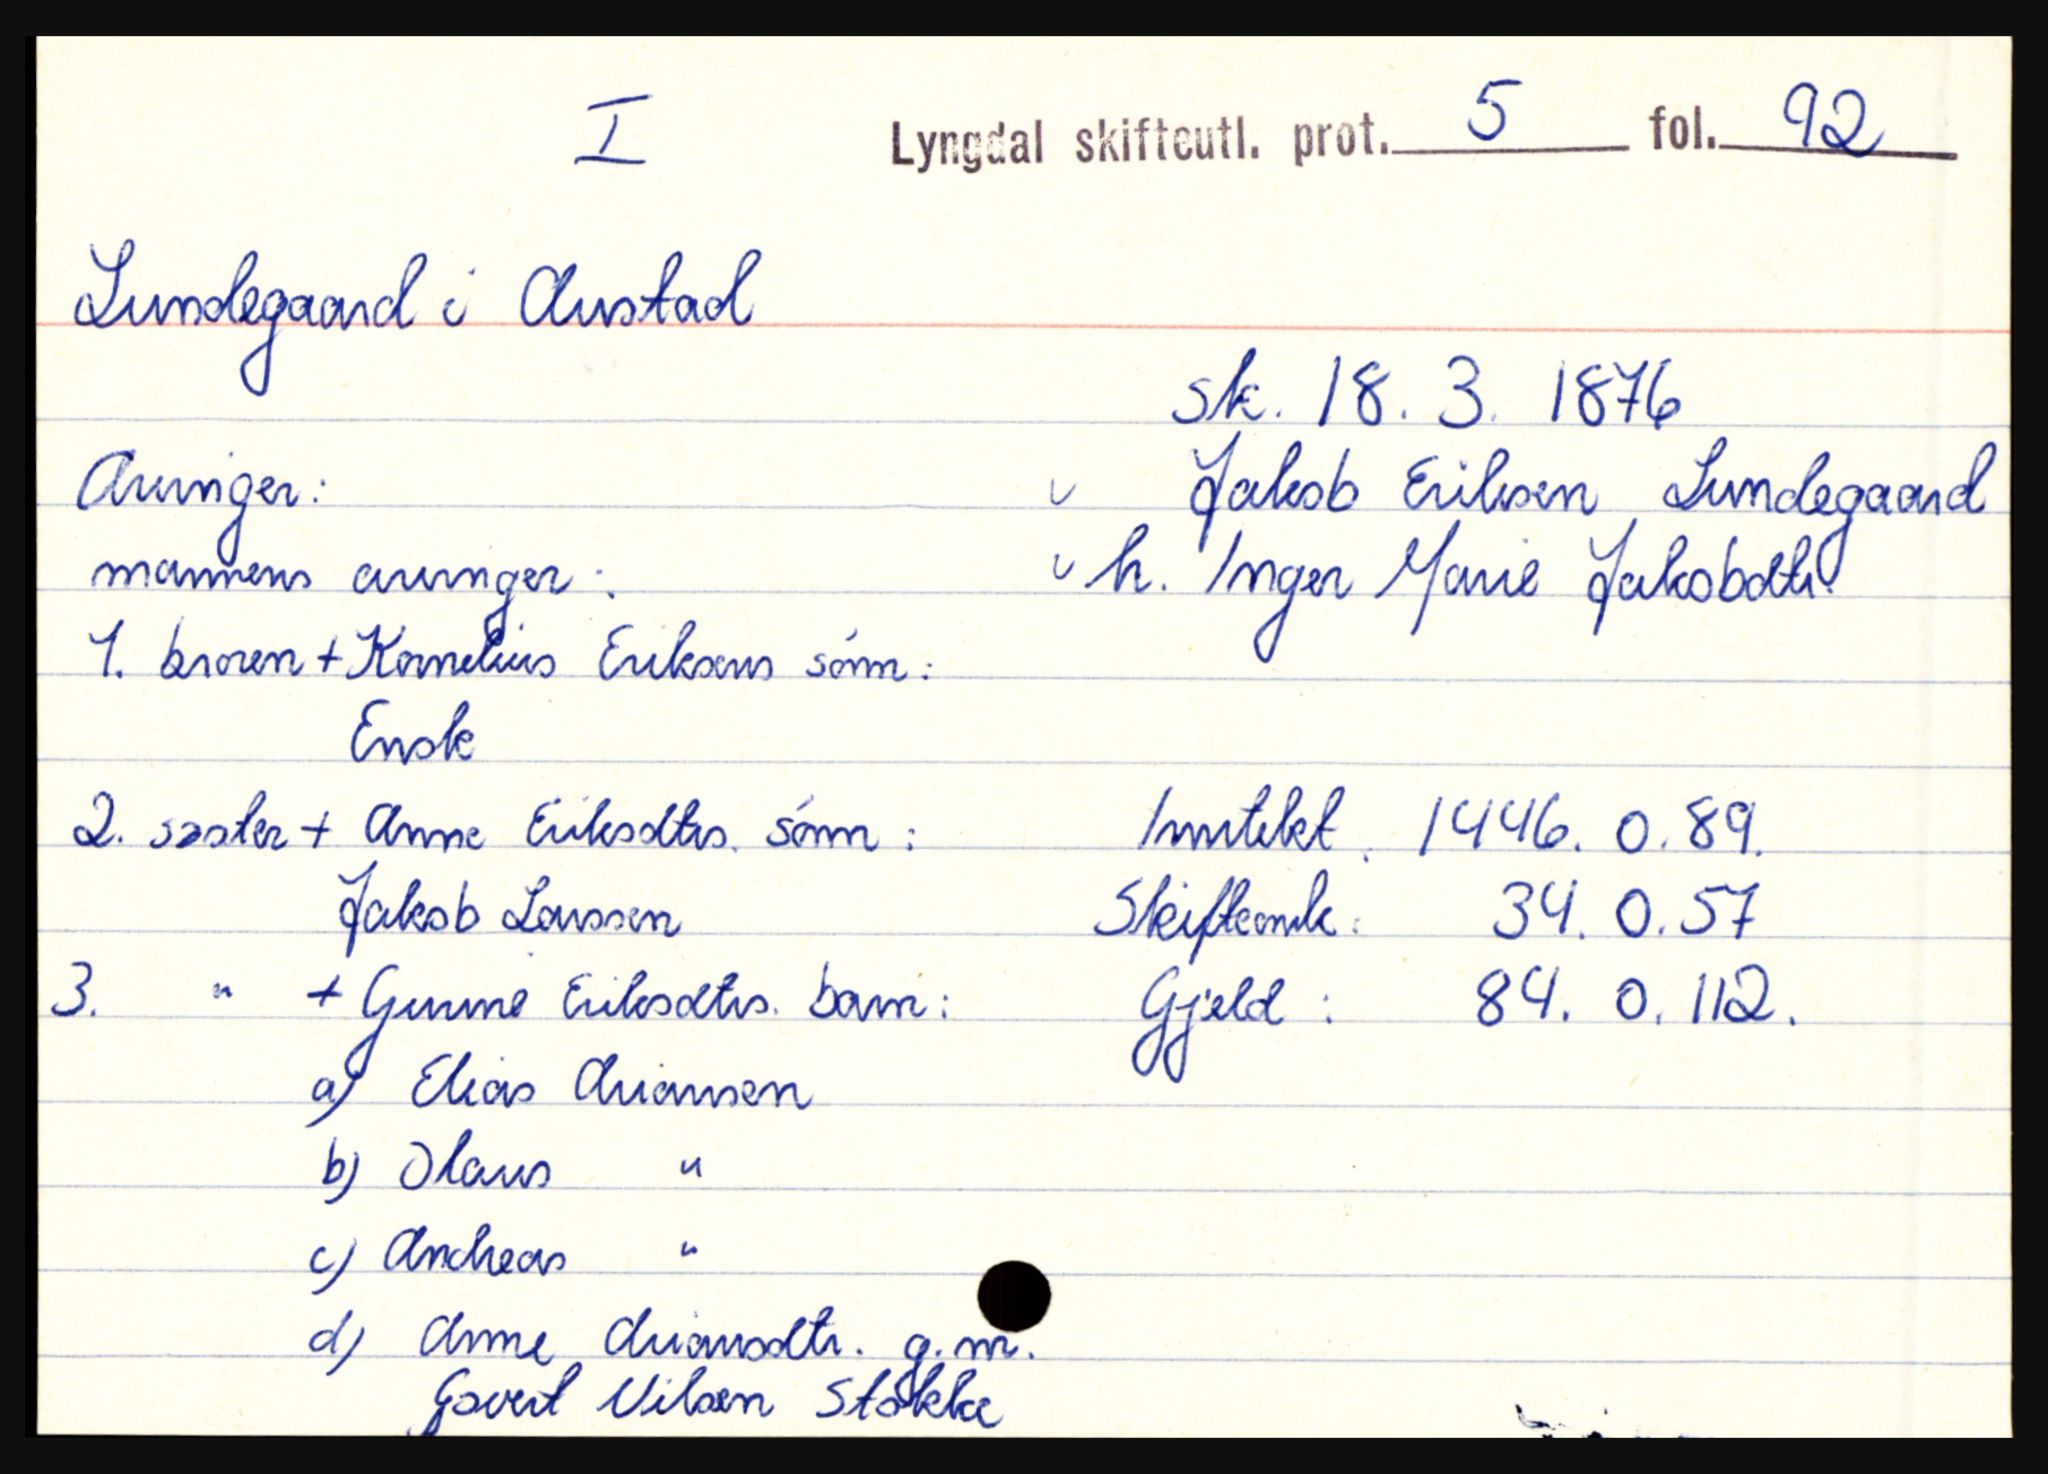 I Lyngdal skifteutl. prot. 5 fol. 92
Lundegaard i Austad
sk. 18. 3. 1876
Arvinger: v Jakob Eriksen Lundegaard
mannens arvinger: v h. Inger Marie Jakobdtr.
1. broren + Kornelius Eriksens sønn:
Ensk
2. søster + Anne Eriksdtrs. sønn: Inntekt: 1446. 0. 89.
Jakob Larssen Skifteomk: 34. 0. 57
3. " + Gunne Eriksdtrs. barn: Gjeld: 84. 0. 112.
a) Elias Ariansen
b) Olaus "
c) Andreas "
d) Anne Ariansdtr. g.m.
Govert Nilsen Støkke